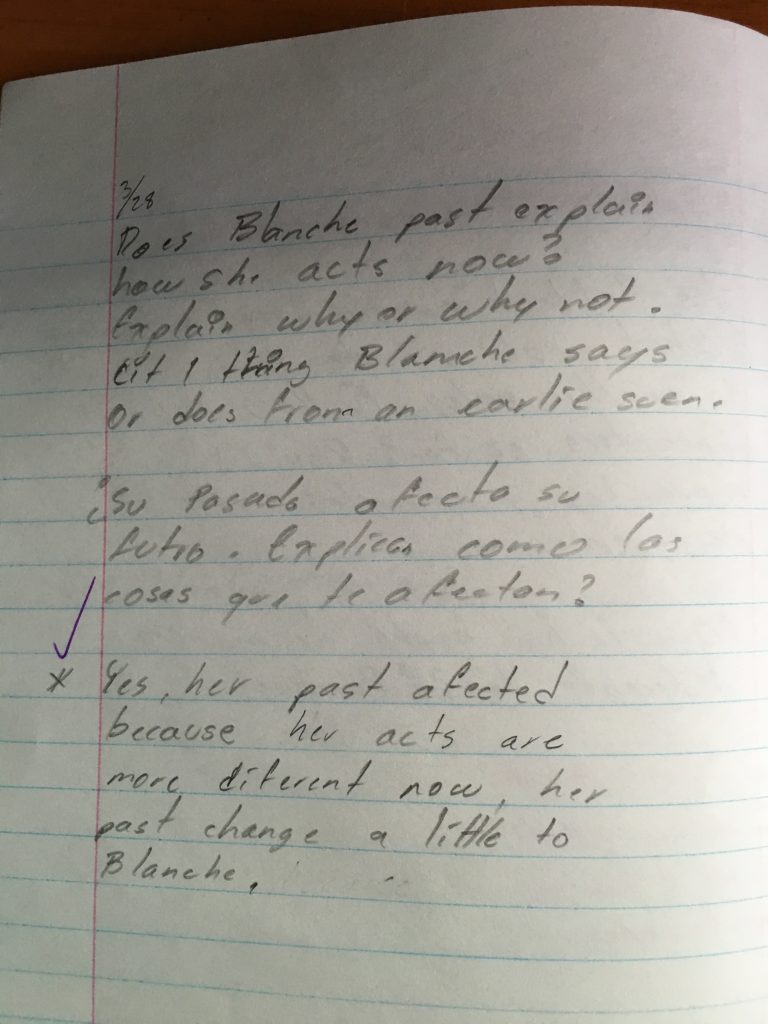 3/28
Does Blanche past explain
how she acts now?
Explain why or why not.
Cit 1 thing Blanche says
Or does from an earlie scen.
¿Su Pasado afecto su
futro. Explican como las
cosas que te afectan?
* Yes, her past afected
because her acts are
more diferent now, her
past change a little to
Blanche.